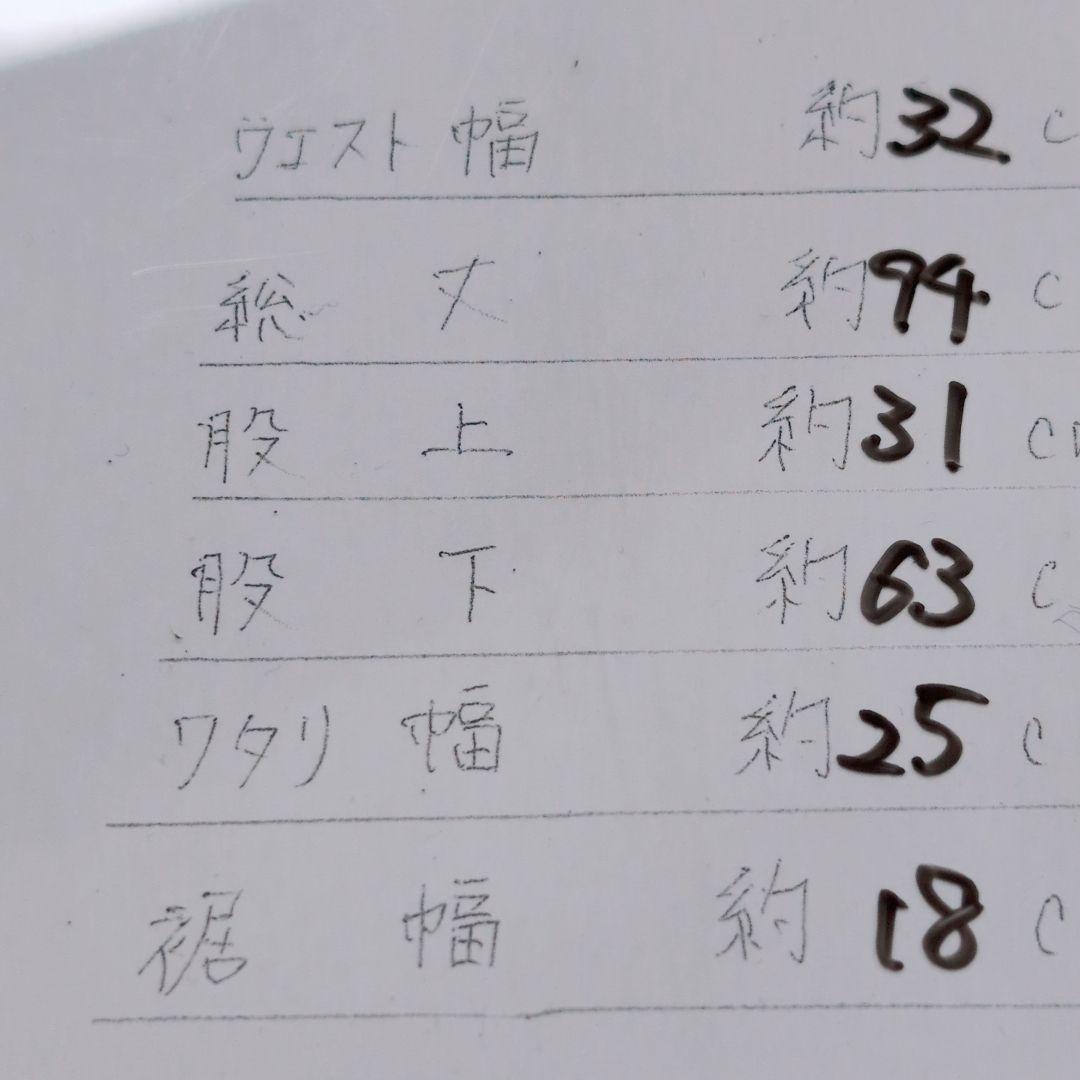 ウエスト幅 約32 c
総丈 約94 c
股上 約31 cm
股下 約63 c
ワタリ幅 約25 c
裾幅 約18 c